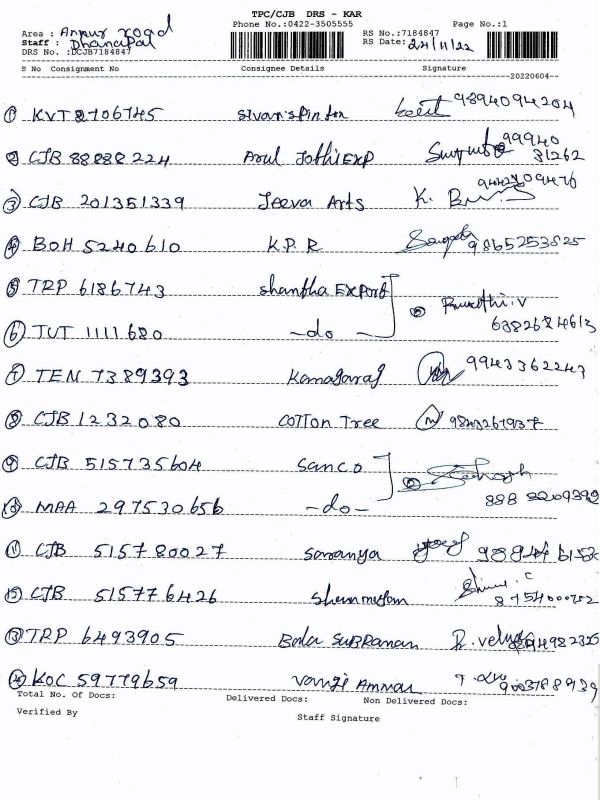 TPC/CJB DRS - KAR
Phone No.:0422-3505555
Page No.:1
Area : Annur road
Staff : Dhanapal
DRS No. :DCJB7184847
RS No.:7184847
RS Date: 24/11/22
S No Consignment No Consignee Details Signature
20220604
1 KVT 8706745 Sivan Spintex 9894094204
2 CJB 88882224 Arul Jothi Exp 99940
31262
3 CJB 201351339 Jeeva Arts K.
4 BOH 5240610 K.P.R 9865253825
5 TRP 6186743 Shantha Export
6 TUT 1111680 -do- 6382684613
7 TEN 7389393 Kamaraj 9943362243
8 CJB 1232080 Cotton Tree 9843267937
9 CJB 515735604 Sanco
10 MAA 297530656 -do-
11 CJB 515780027 Saranya
12 CJB 515776426 Shanmugam
13 TRP 6493905 Bala Subraman R. Velu
14 KOC 59779659 Vanji Ammai
Total No. Of Docs: Delivered Docs: Non Delivered Docs:
Verified By
Staff Signature